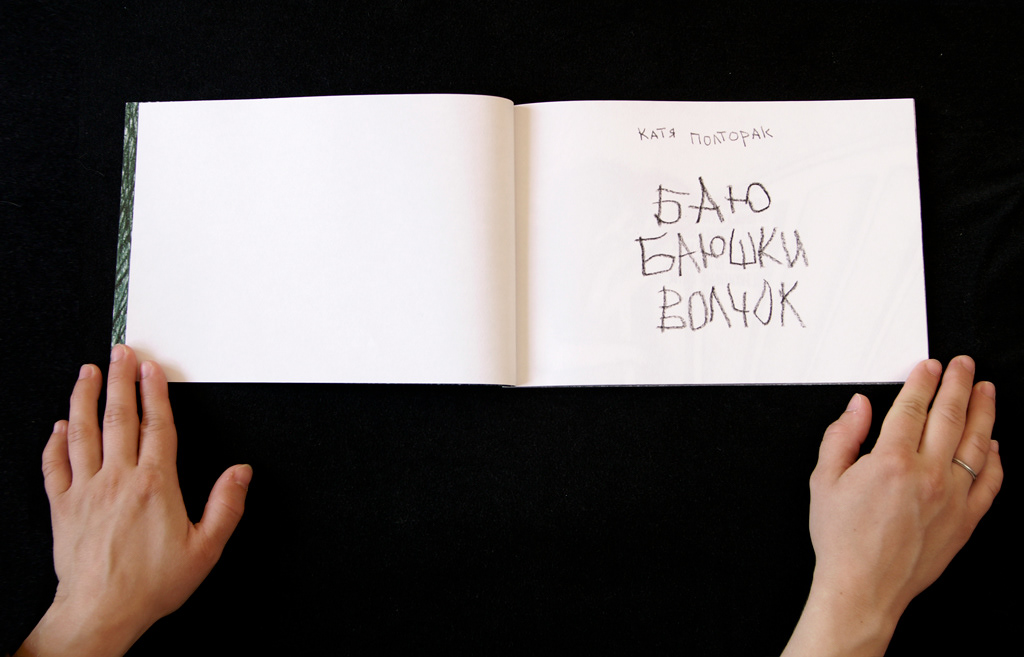 КАТЯ ПОЛТОРАК
БАЮ
БАЮШКИ
ВОЛЧОК